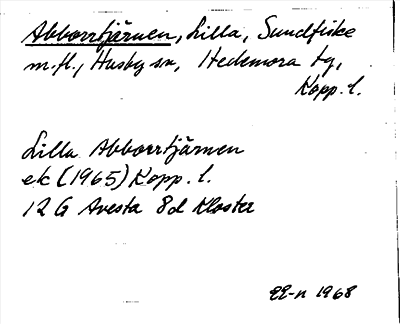 Abborrtjärnen, Lilla, Sundfiske
m.fl., Husby sn, Hedemora tg,
Kopp. l.
Lilla Abborrtjärnen
ek (1965) Kopp. l.
12 G Avesta 8d Kloster
1968